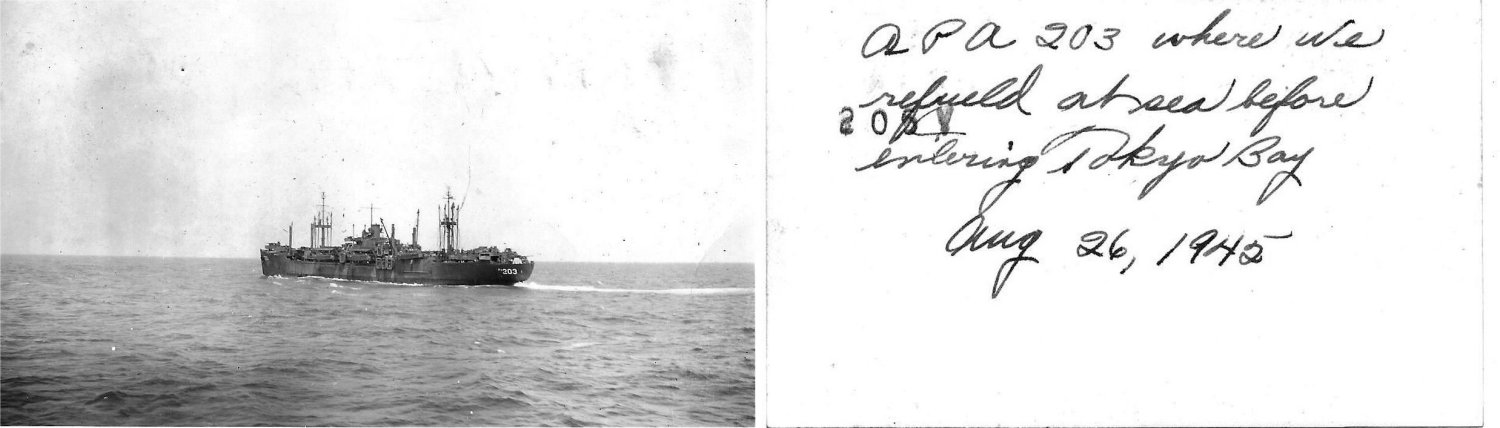 203
A P A 203 where we
refueld at sea before
entering Tokyo Bay
Aug 26, 1945